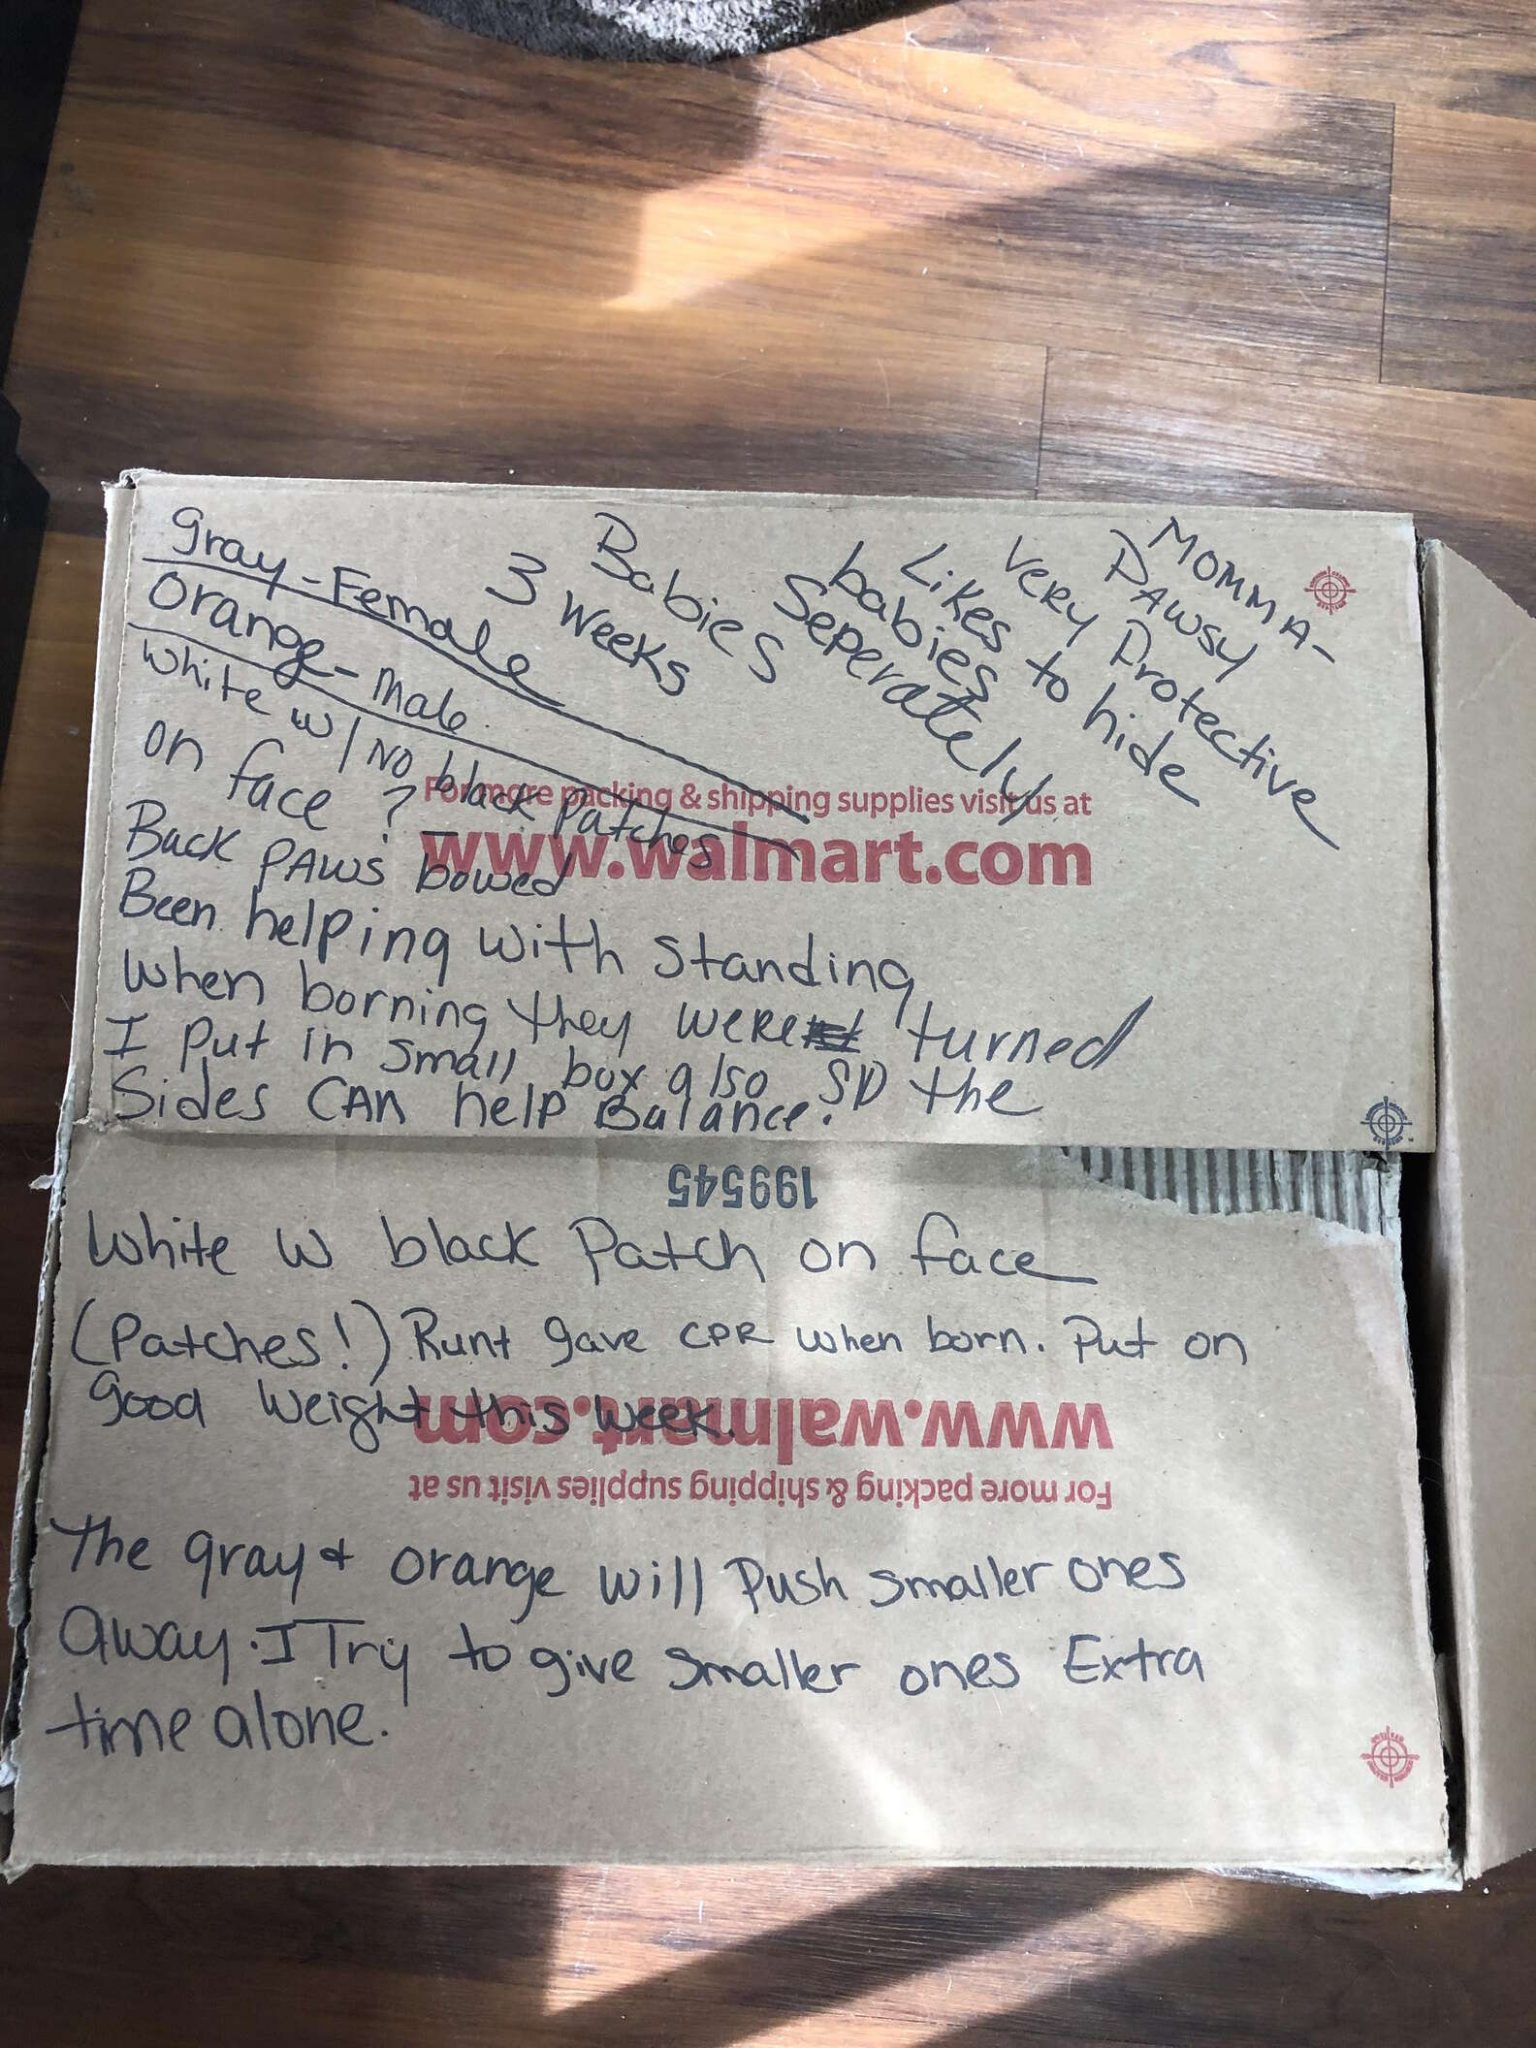 MOMMA-
PAWSY
very Protective
Likes to hide
babies
Seperately
Babies
3 weeks
gray-Female
orange-Male.
white w/ NO black Patches
on face ?
Back PAWS bowed
Been helping with standing
when borning they were turned
I Put in small box also SO the
Sides CAN help Balance.
For more packing & shipping supplies visit us at
www.walmart.com
199545
White w black Patch on face
(Patches!) Runt gave CPR when born. Put on
good weight this week.
www.walmart.com
For more packing & shipping supplies visit us at
The gray & orange will Push smaller ones
away. I Try to give smaller ones Extra
time alone.